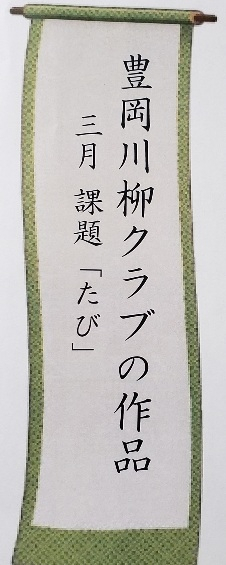 豊岡川柳クラブの作品
三月 課題「たび」